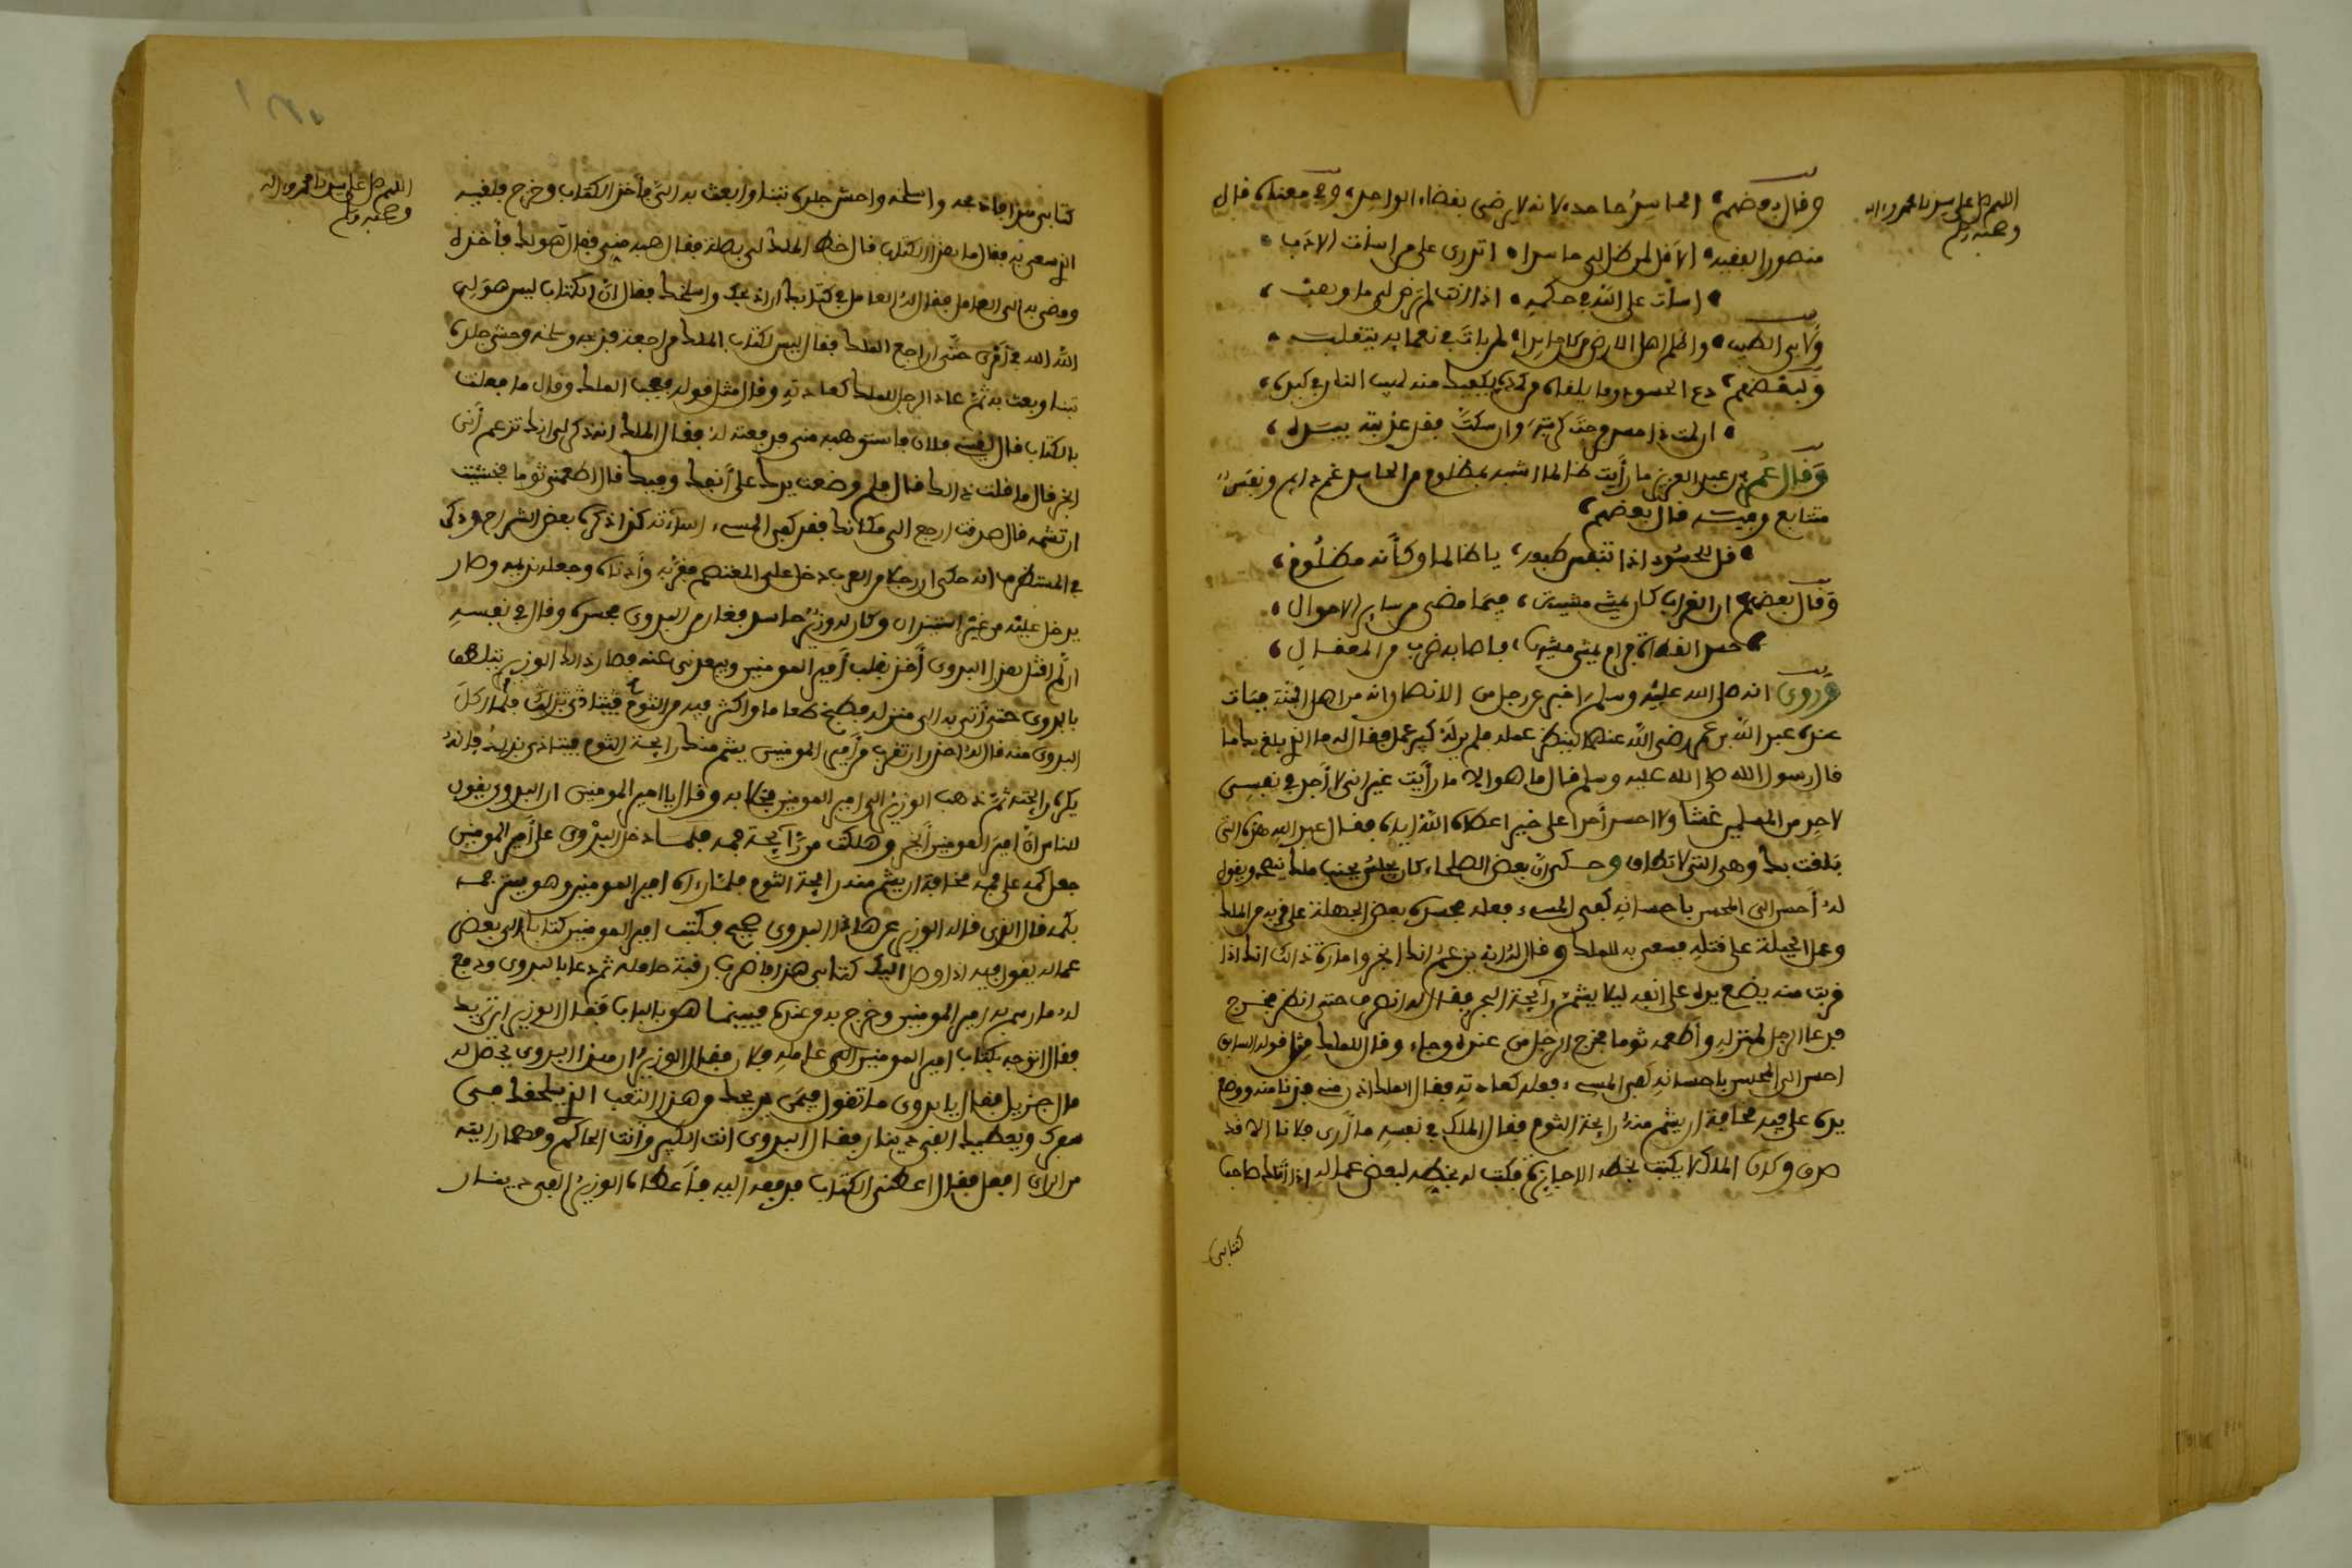 اللهم صل على سيدنا محمد واله
وصحبه وسلم
وقال بعضهم الحاسد جاحد لانه لا يرضى بقضاء الواحد وفي معناه قال
منصور الفقيه الا قل لمن ظل لي حاسدا اتدرى على من اسأت الادب
اسأت على الله في حكمه اذا انت لم ترض لي ما وهب
ولابي الطيب واظلم اهل الارض من كان حاسدا لمن بات في نعمايه يتقلب
ولبعضهم دع الحسود وما يلقاه من كمده يكفيك منه لهيب النار في كبده
ان لمت ذا حسد نفثت كربته وان سكت فقد عذبته بيده
وقال عمر بن عبد العزيز ما رأيت ظالما اشبه بمظلوم من الحاسد غم دايم ونفس
متتابع وفيه قال بعضهم
قل للحسود اذا تنفس طعنة يا ظالما وكأنه مظلوم
وقال بعضهم ان الغراب كان يمشي مشية فيما مضى من ساير الاحوال
حسد القطاة فرام يمشي مشيها فاصابه ضرب من العقال
وروي انه صلى الله عليه وسلم اخبر عن رجل من الانصار انه من اهل الجنة فبات
عنده عبد الله بن عمر رضي الله عنهما لينظر عمله فلم ير له كبير عمل فقال له ما الذي بلغ بك ما
قال رسول الله صلى الله عليه وسلم قال ما هو الا ما رأيت غير اني لا أجد في نفسي
لاحد من المسلمين غشا ولا احسد أحدا على خير اعطاه الله اياه فقال عبد الله هذه التي
بلغت بك وهي التي لا تطاق وحكي ان بعض الصلحاء كان يجلس بجنب ملك ينصحه ويقول
له أحسن الى المحسن باحسانه كفى المسيء فعله فحسده بعض الجهلة على قربه من الملك
وعمل الحيلة على قتله فسعى به للملك وقال له انه يزعم انك ابخر وامارة ذلك انك اذا
قربت منه يضع يده على انفه ليلا يشم رآيحة البخر فقال له انصرف حتى انظر فخرج
فدعا الرجل لمنزله وأطعمه ثوما فخرج الرجل من عنده وجاء وقال للملك مثل قوله السابق
احسن الى المحسن باحسانه كفى المسيء فعله كعادته فقال الملك ادن مني فدنا منه ووضع
يده على فيه مخافة ان يشم منه رايحة الثوم فقال الملك في نفسه ما أرى فلانا الا قد
صدق وكان الملك لا يكتب بخطه الا جايزة فكتب له بخطه لبعض عماله اذا أتاك صاحب
كتابي
اللهم صل على سيدنا محمد واله
وصحبه وسلم
كتابي هذا فاذبحه واسلخه واحش جلده تبنا وابعث به الي فأخذ الكتاب وخرج فلقيه
الذي سعى به فقال ما هذا الكتاب قال خط الملك لي بصلة فقال هبه مني فقال هو لك فأخذه
ومضى به الى العامل فقال له العامل في كتابك ان اذبحك واسلخك فقال ان الكتاب ليس هو لي
الله الله في أمري حتى اراجع الملك فقال ليس لكتاب الملك مراجعة فذبحه وسلخه وحشى جلده
تبنا وبعث به ثم عاد الرجل للملك كعادته وقال مثل قوله فعجب الملك وقال ما فعلت
بالكتاب قال لقيني فلان فاستوهبه مني فدفعته له فقال الملك انه ذكر لي انك تزعم أني
ابخر قال ما قلت ذلك قال فلم وضعت يدك على أنفك وفيك قال اطعمني ثوما فخشيت
ان تشمه قال صدقت ارجع الى مكانك فقد كفى المسيء اسآءته كذا ذكره بعض الشراح وذكر
في المستطرف انه حكي ان رجلا من العرب دخل على المعتصم فقربه وأدناه وجعله نديمه وصار
يدخل عليه من غير استيذان وكان له وزير حاسد فغار من البدوى وحسده وقال في نفسه
ان لم اقتل هذا البدوى أخذ بقلب أمير المومنين ويبعدني عنه فصار ذلك الوزير يتلطف
بالبدوى حتى أتى به الى منزله فطبخ طعاما واكثر فيه من الثوم فلما أكل
البدوى منه قال له احذر ان تقرب من أمير المومنين يشم منك رايحة الثوم فيتاذى بذلك فانه
يكره رايحته ثم ذهب الوزير الى امير المومنين فخلا به وقال يا امير المومنين ان البدوي يقول
للناس ان امير المومنين أبخر وهلكت من رآيحة فمه فلما دخل البدوي على أمير المومنين
جعل كمه على فمه مخافة ان يشم منه رايحة الثوم فلما رءاه امير المومنين وهو يستر فمه
بكمه قال ان الذى قاله الوزير عن هذا البدوى صحيح فكتب امير المومنين كتابا الى بعض
عماله يقول فيه اذا وصل اليك كتابي هذا فاضرب رقبة حامله ثم دعا بالبدوى ودفع
له ما رسم به امير المومنين وخرج به من عنده فبينما هو بالباب فقال الوزير اين تريد
فقال اتوجه بكتاب امير المومنين الى عامله فلان فقال الوزير ان هذا البدوى يحصل له
مال جزيل فقال يا بدوى ما تقول فيمن يريحك من هذا التعب الذي يلحقك في
سفرك ويعطيك الفي دينار فقال البدوى انت الكبير وأنت الحاكم ومهما رايته
من الراى افعل فقال اعطني الكتاب فدفعه اليه فأعطاه الوزير الفي دينار